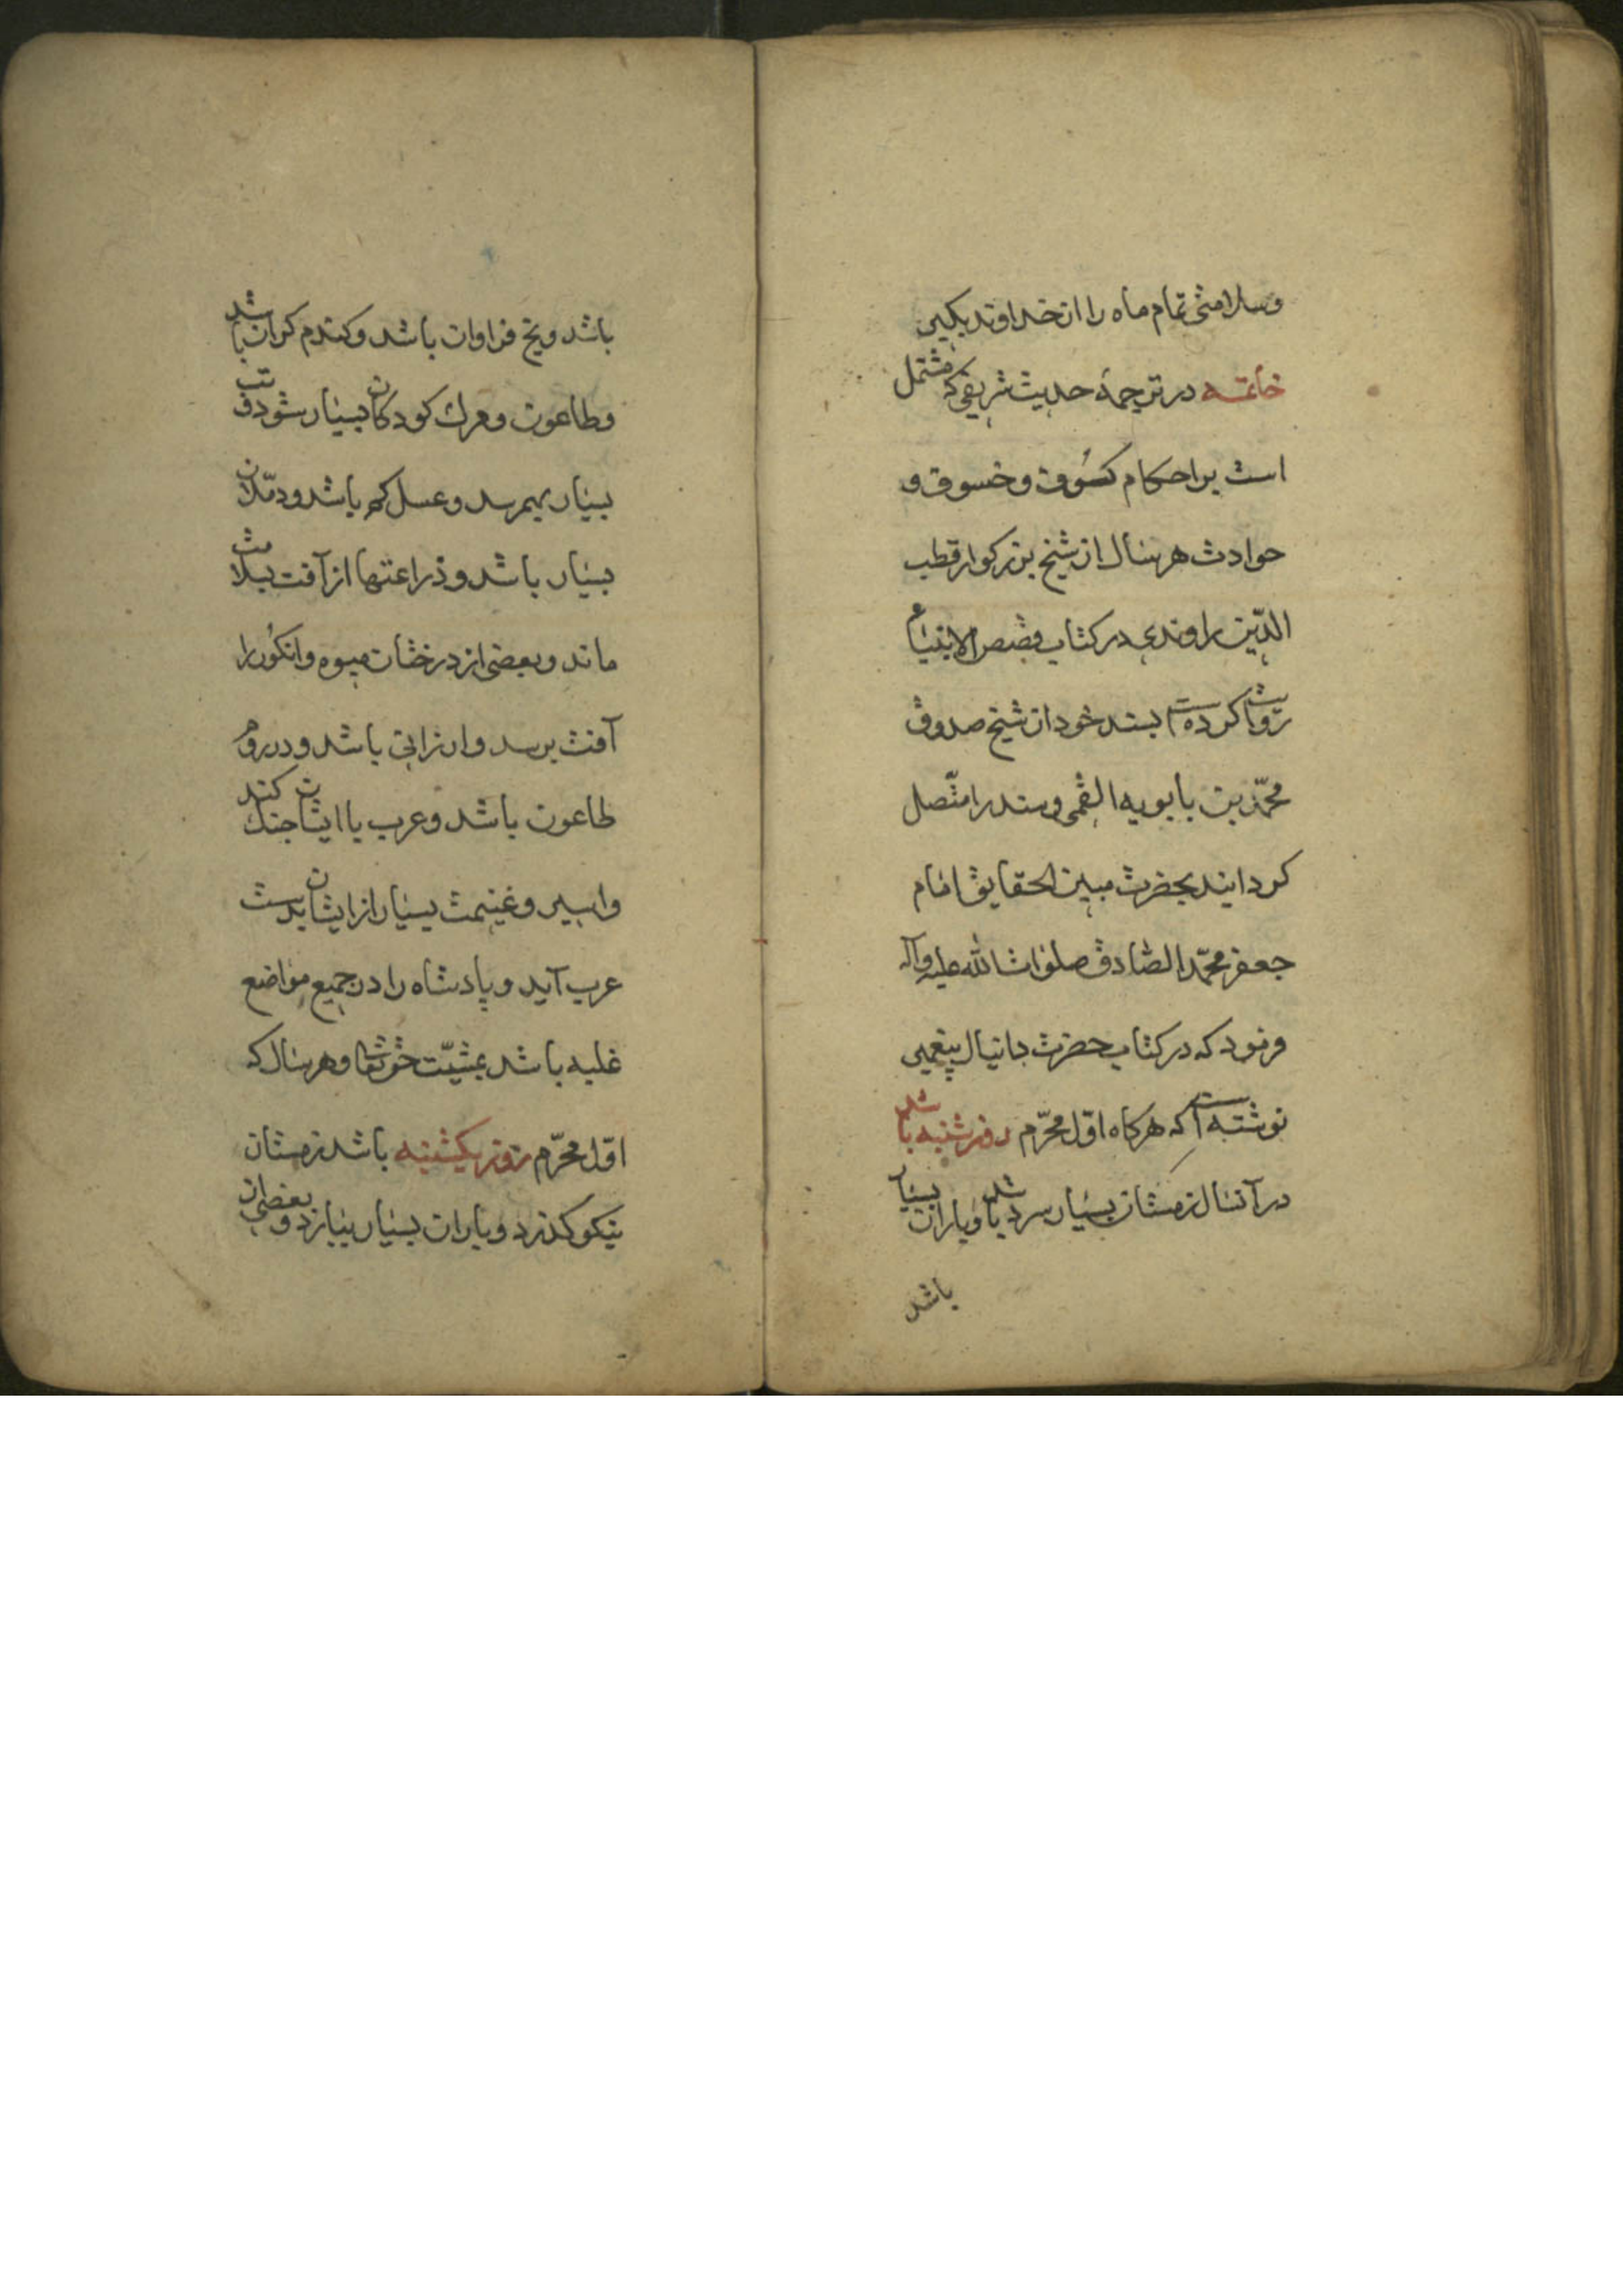 وسلامتی تمام ماه را از خداوند بکیر
خاتمه در ترجمهٔ حدیث شریفی که مشتمل
است بر احکام کسُوف و خسوف و
حوادث هر سال از شیخ بزرکوار قطب
الدّین راوندی در کتاب قصص الانبیاء
روایت کرده است بسند خود از شیخ صدوق
محمّد بن بابویه القمی وسند را متّصل
کردانیده بحضرت مبین الحقایق امام
جعفر محمّد الصّادق صلوات الله علیه وآله
فرمود که در کتاب حضرت دانیال پیغمبر
نوشته است که هرکاه اوّل محرّم روز شنبه باشد
در آنسال زمستان بسیار سرد باشد وباران بسیار
باشد
باشد ویخ فراوان باشد وکندم کران باشد
وطاعون ومرک کودکان بسیار شود وتب
بسیار بهم رسد وعسل کم باشد ودمّلان
بسیار باشد وذراعتها از آفت بسلامت
ماند وبعضی از درختان میوه وانکوُر را
آفت برسد وارزانی باشد ودر روم
طاعون باشد وعرب با ایشان جنک کند
واسیر وغنیمت بسیار از ایشان بدست
عرب آید وپادشاه را در جمیع مواضع
غلبه باشد بمشیّت حق تعالی وهر سال که
اوّل محرّم روز یکشنبه باشد زمستان
نیکو کذرد وباران بسیار ببارد وبعضی از